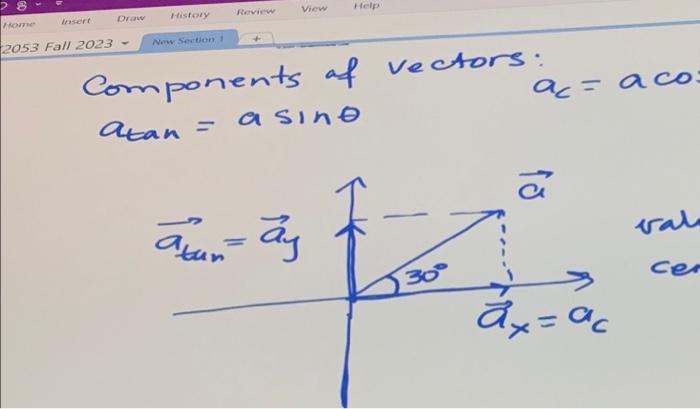 Home Insert Draw History Review View Help
2053 Fall 2023 New Section 1 +
Components of vectors:
a_c = a co
a_tan = a sinθ
a⃗
a⃗_tan = a⃗_y
30°
a⃗_x = a_c